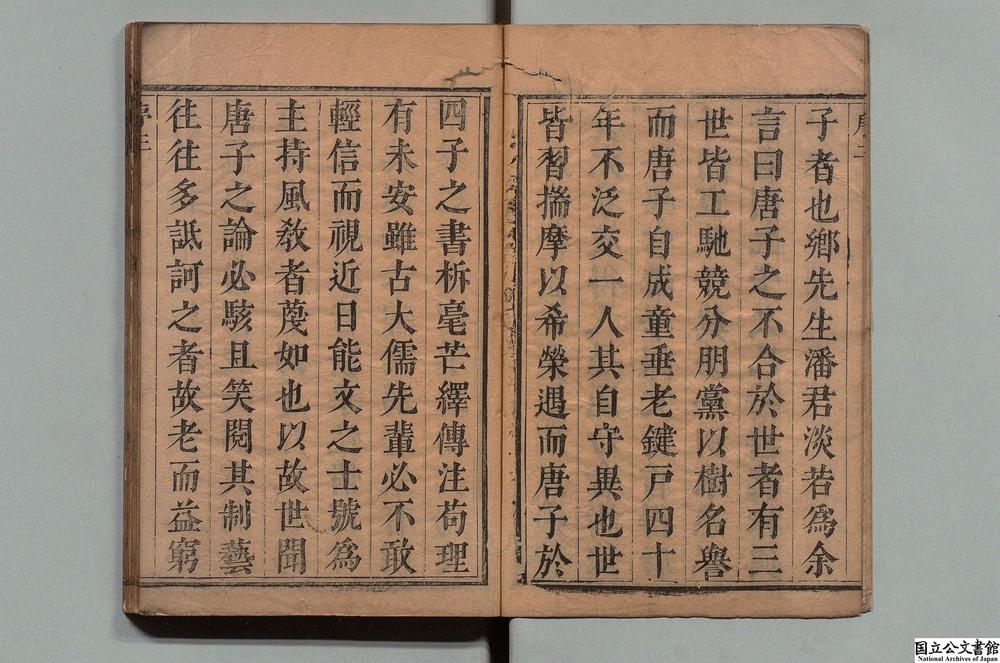 子者也鄉先生潘君淡若爲余
言曰唐子之不合於世者有三
世皆工馳競分朋黨以樹名譽
而唐子自成童垂老鍵戸四十
年不泛交一人其自守異也世
皆習揣摩以希榮遇而唐子於
四子之書析毫芒繹傳注苟理
有未安雖古大儒先輩必不敢
輕信而視近日能文之士號爲
主持風敎者蔑如也以故世聞
唐子之論必駭且笑閱其制藝
往往多詆訶之者故老而益窮
国立公文書館
National Archives of Japan